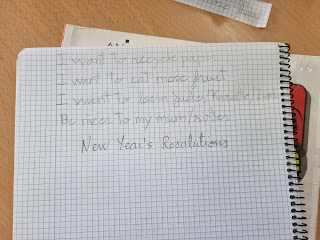 I want to recycle paper
I want to eat more fruit
I want to learn judo/Karate/
Be nicer to my mum/sister
New Year's Resolutions